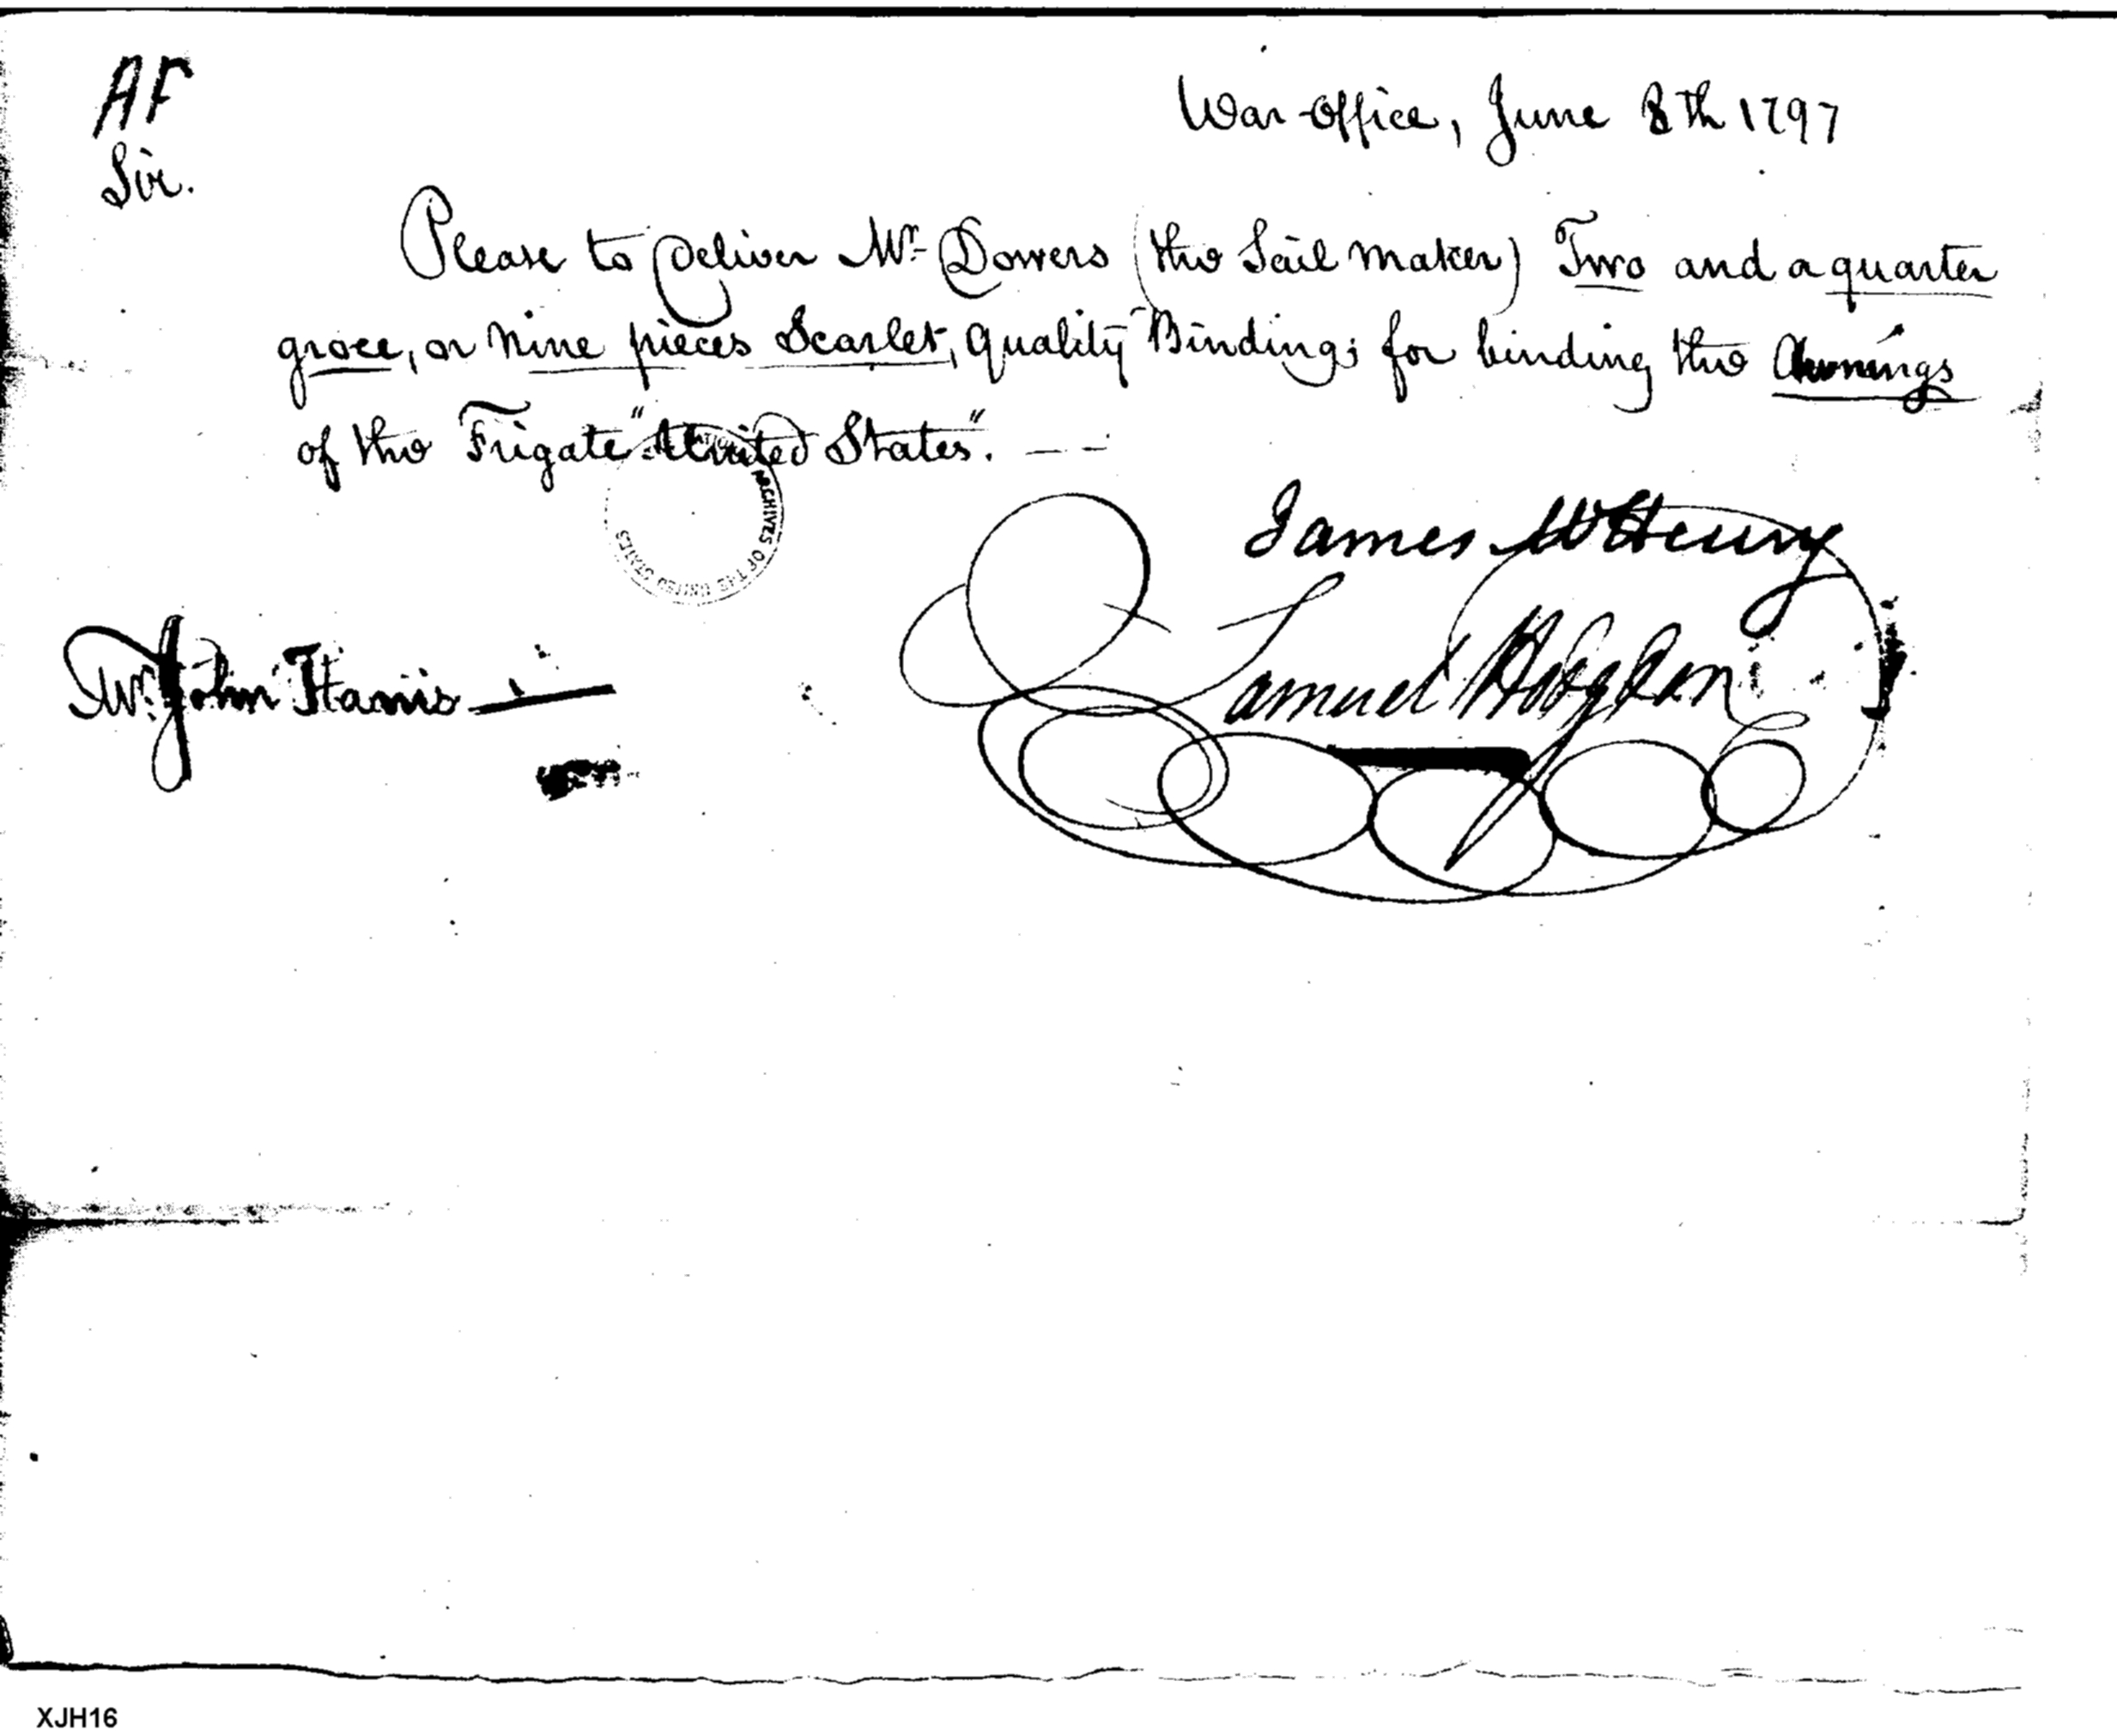 AF
War-Office, June 8th 1797
Sir.
Please to Deliver Mr. Dowers (the Sail maker) Two and a quarter
groce, or nine pieces Scarlet, quality Binding; for binding the Awnings
of the Frigate "United States".
ARCHIVES OF THE UNITED STATES
James McHenry
Samuel Hodgdon
Mr. John Harris
XJH16